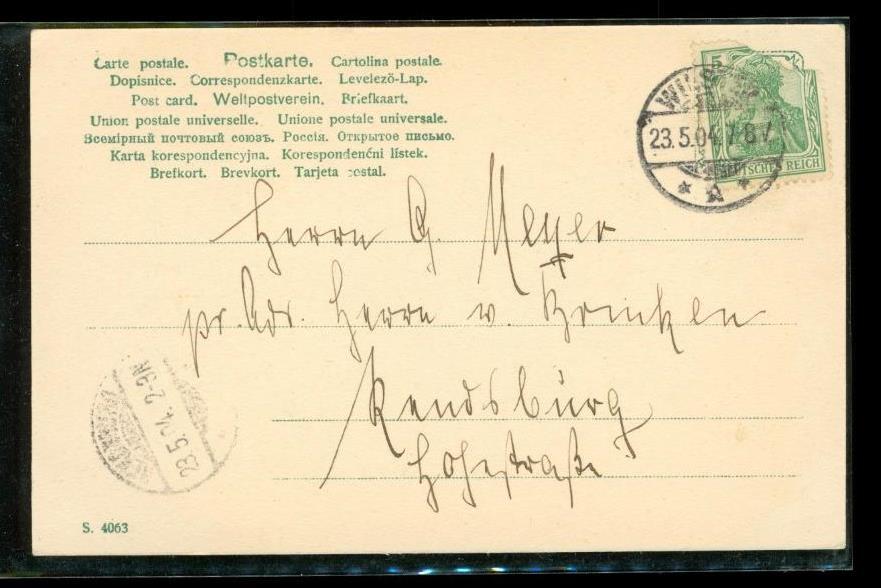 Carte postale. Postkarte. Cartolina postale.
Dopisnice. Correspondenzkarte. Levelező-Lap.
Post card. Weltpostverein. Briefkaart.
Union postale universelle. Unione postale universale.
Всемірный почтовый союзъ. Россія. Открытое письмо.
Karta korespondencyjna. Korespondenční lístek.
Brefkort. Brevkort. Tarjeta postal.
5
DEUTSCHES REICH
23.5.04. 7-8 V
Herrn G. Meyer
pr. Adr. Herrn v.
Rendsburg
Hohestraße
23.5.04. 2-3N
S. 4063